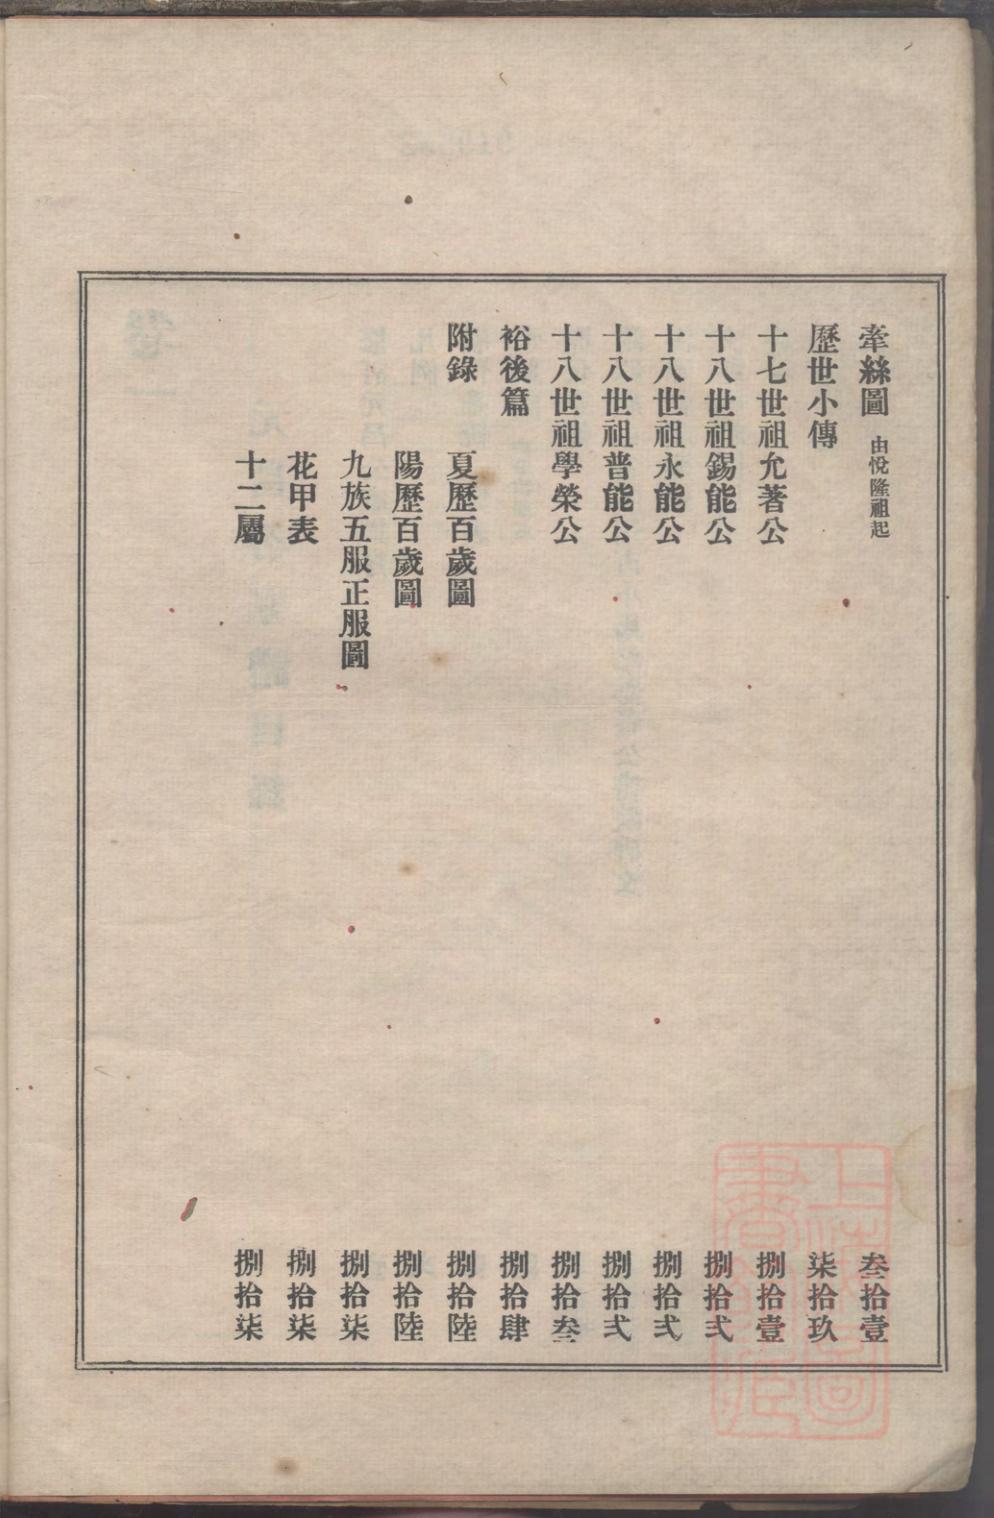 牽絲圖 由悅隆祖起 叁拾壹
歷世小傳 柒拾玖
十七世祖允著公 捌拾壹
十八世祖錫能公 捌拾弍
十八世祖永能公 捌拾弍
十八世祖普能公 捌拾弍
十八世祖學榮公 捌拾叁
裕後篇 捌拾肆
附錄 夏歷百歲圖 捌拾陸
陽歷百歲圖 捌拾陸
九族五服正服圖 捌拾柒
花甲表 捌拾柒
十二屬 捌拾柒
上海圖書館藏